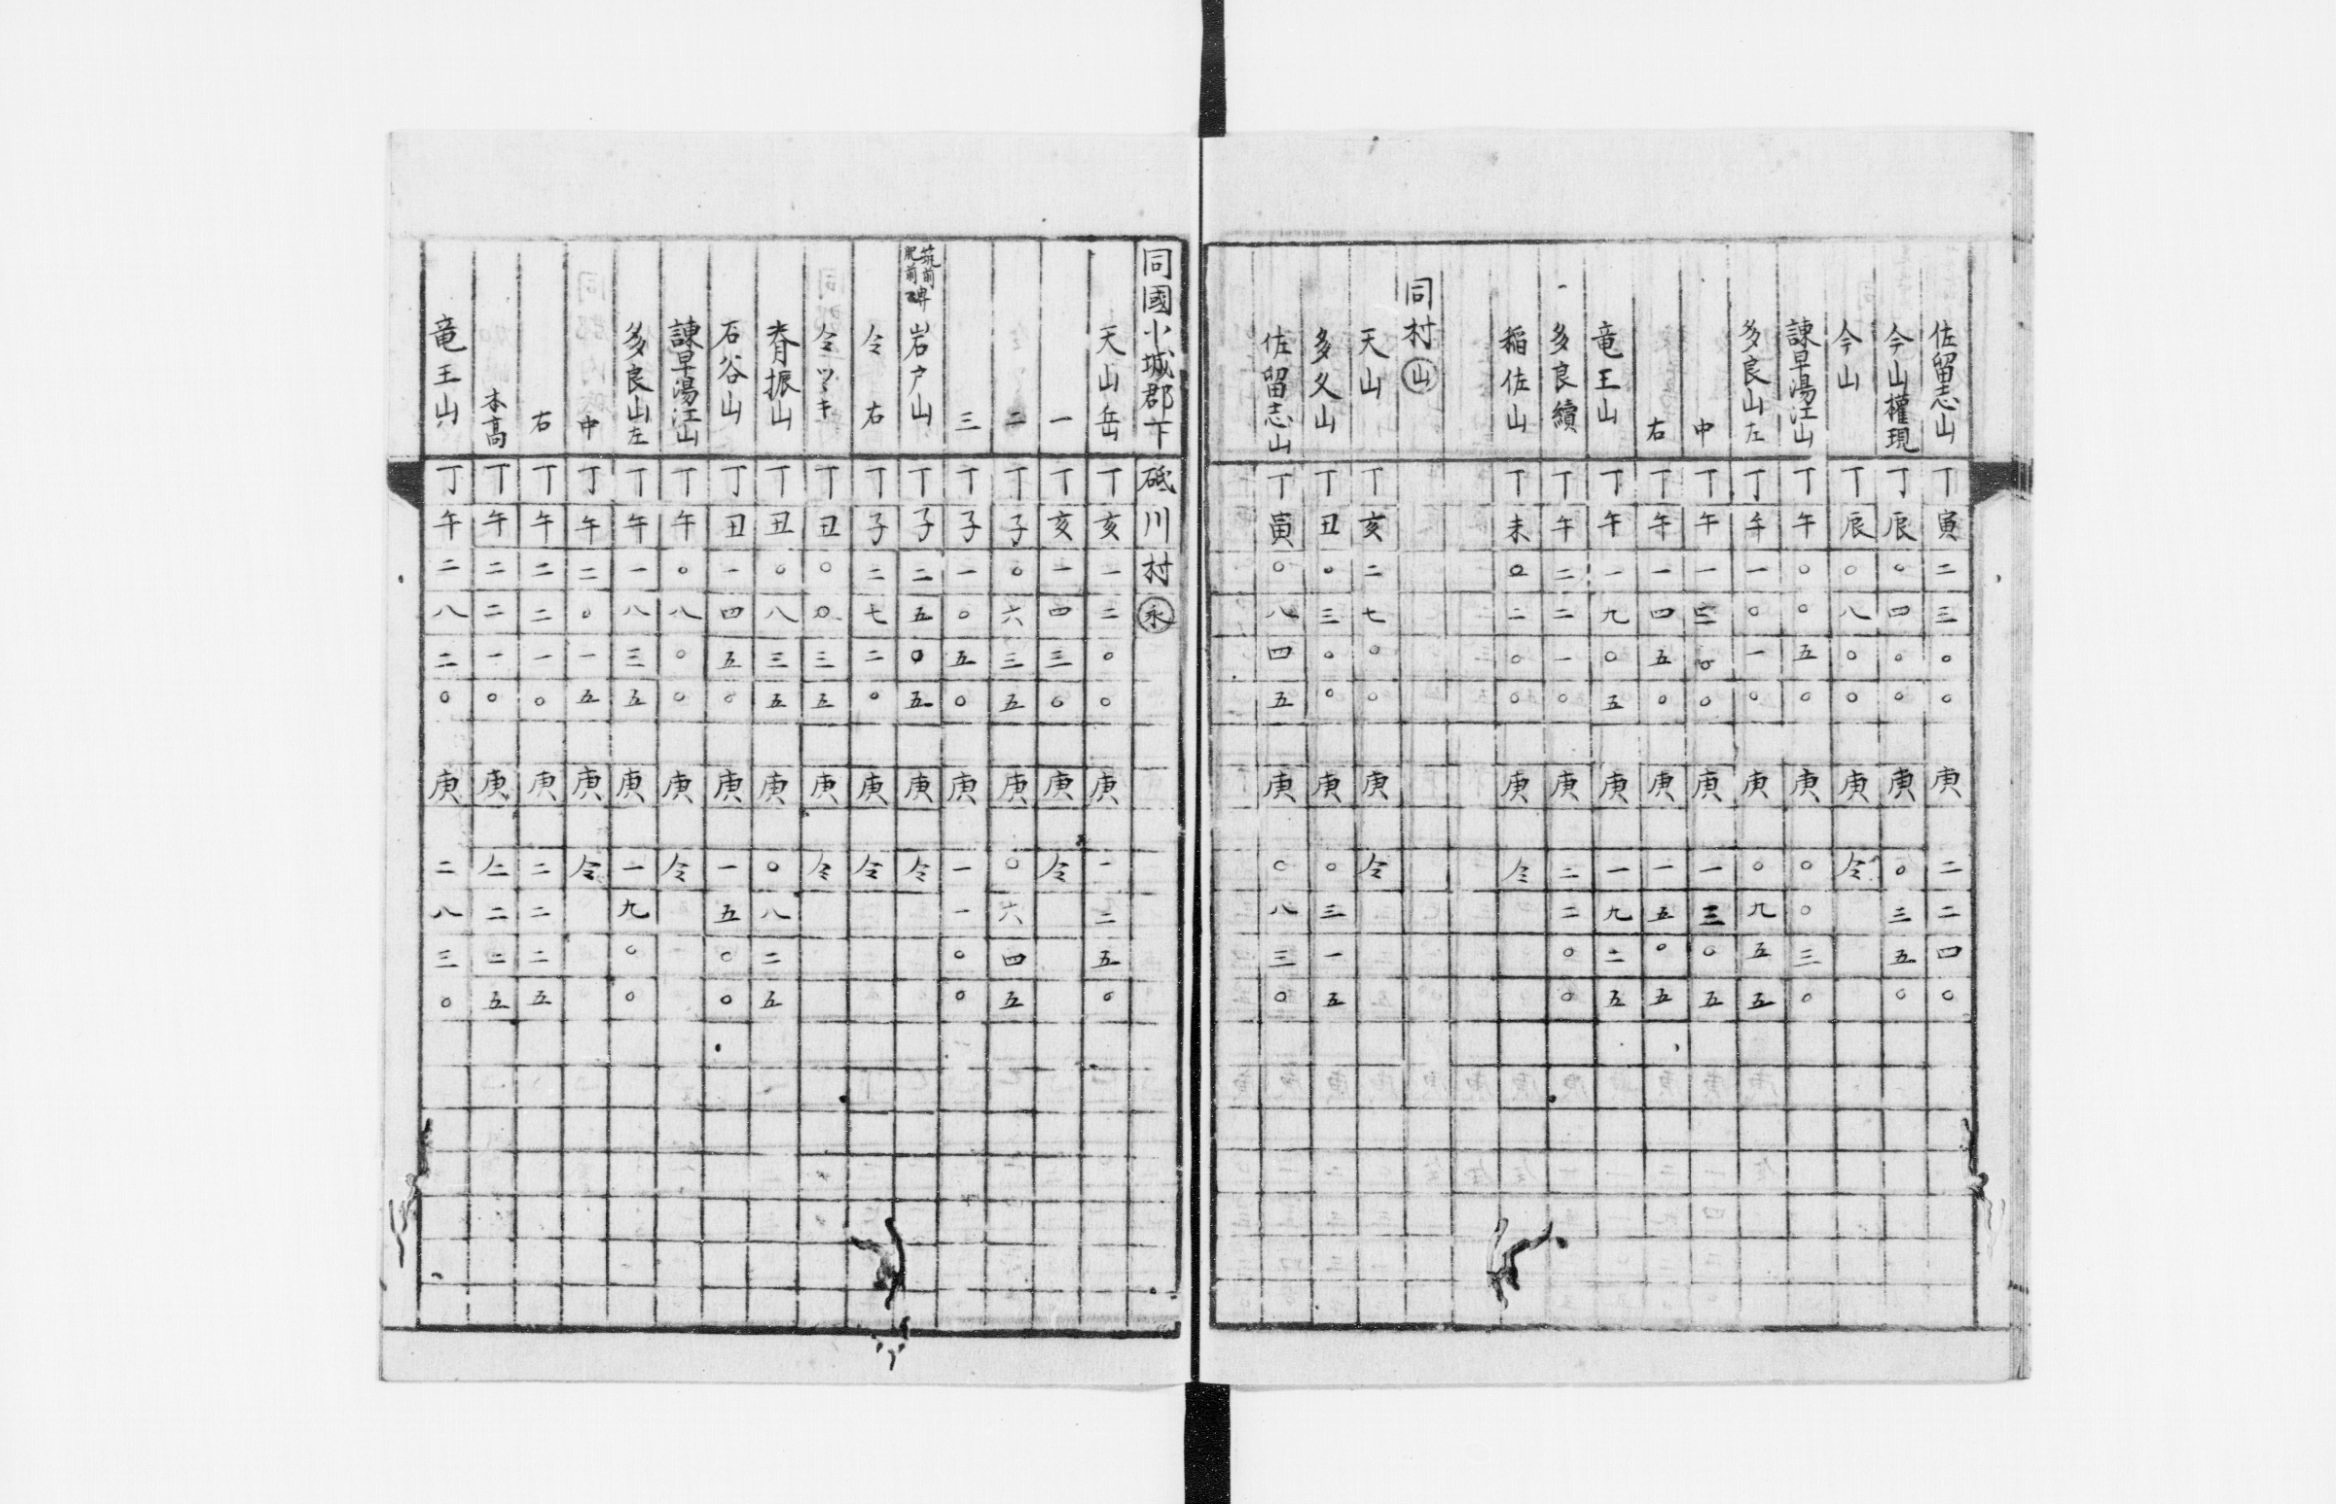 佐留志山 丁寅二三〇〇 庚 二二四〇
今山權現 丁辰〇四〇〇 庚 〇三五〇
今山 丁辰〇八〇〇 庚 仝
諫早湯江山 丁午〇〇五〇 庚 〇〇三〇
多良山左 丁午一〇一〇 庚 〇九五五
中 丁午一三〇〇 庚 一三〇五
右 丁午一四五〇 庚 一五〇五
竜王山 丁午一九〇五 庚 一九二五
多良續 丁午二二一〇 庚 二二〇〇
稲佐山 丁未〇二〇〇 庚 仝
同村㊤山
天山 丁亥二七〇〇 庚 仝
多久山 丁丑〇三〇〇 庚 〇三一五
佐留志山 丁寅〇八四五 庚 〇八三〇
同國小城郡下砥川村永
天山岳 丁亥一二〇〇 庚 一二五〇
一 丁亥一四三〇 庚 仝
二 丁子〇六三五 庚 〇六四五
三 丁子一〇五〇 庚 一一〇〇
筑前肥前界 岩戸山 丁子二五〇五 庚 仝
仝 右 丁子二七二〇 庚 仝
仝ツヽキ 丁丑〇〇三五 庚 仝
脊振山 丁丑〇八三五 庚 〇八二五
石谷山 丁丑一四五〇 庚 一五〇〇
諫早湯江山 丁午〇八〇〇 庚 仝
多良山左 丁午一八三五 庚 一九〇〇
中 丁午二〇一五 庚 仝
右 丁午二二一〇 庚 二二二五
本高 丁午二二一〇 庚 仁二二五
竜王山 丁午二八二〇 庚 二八三〇